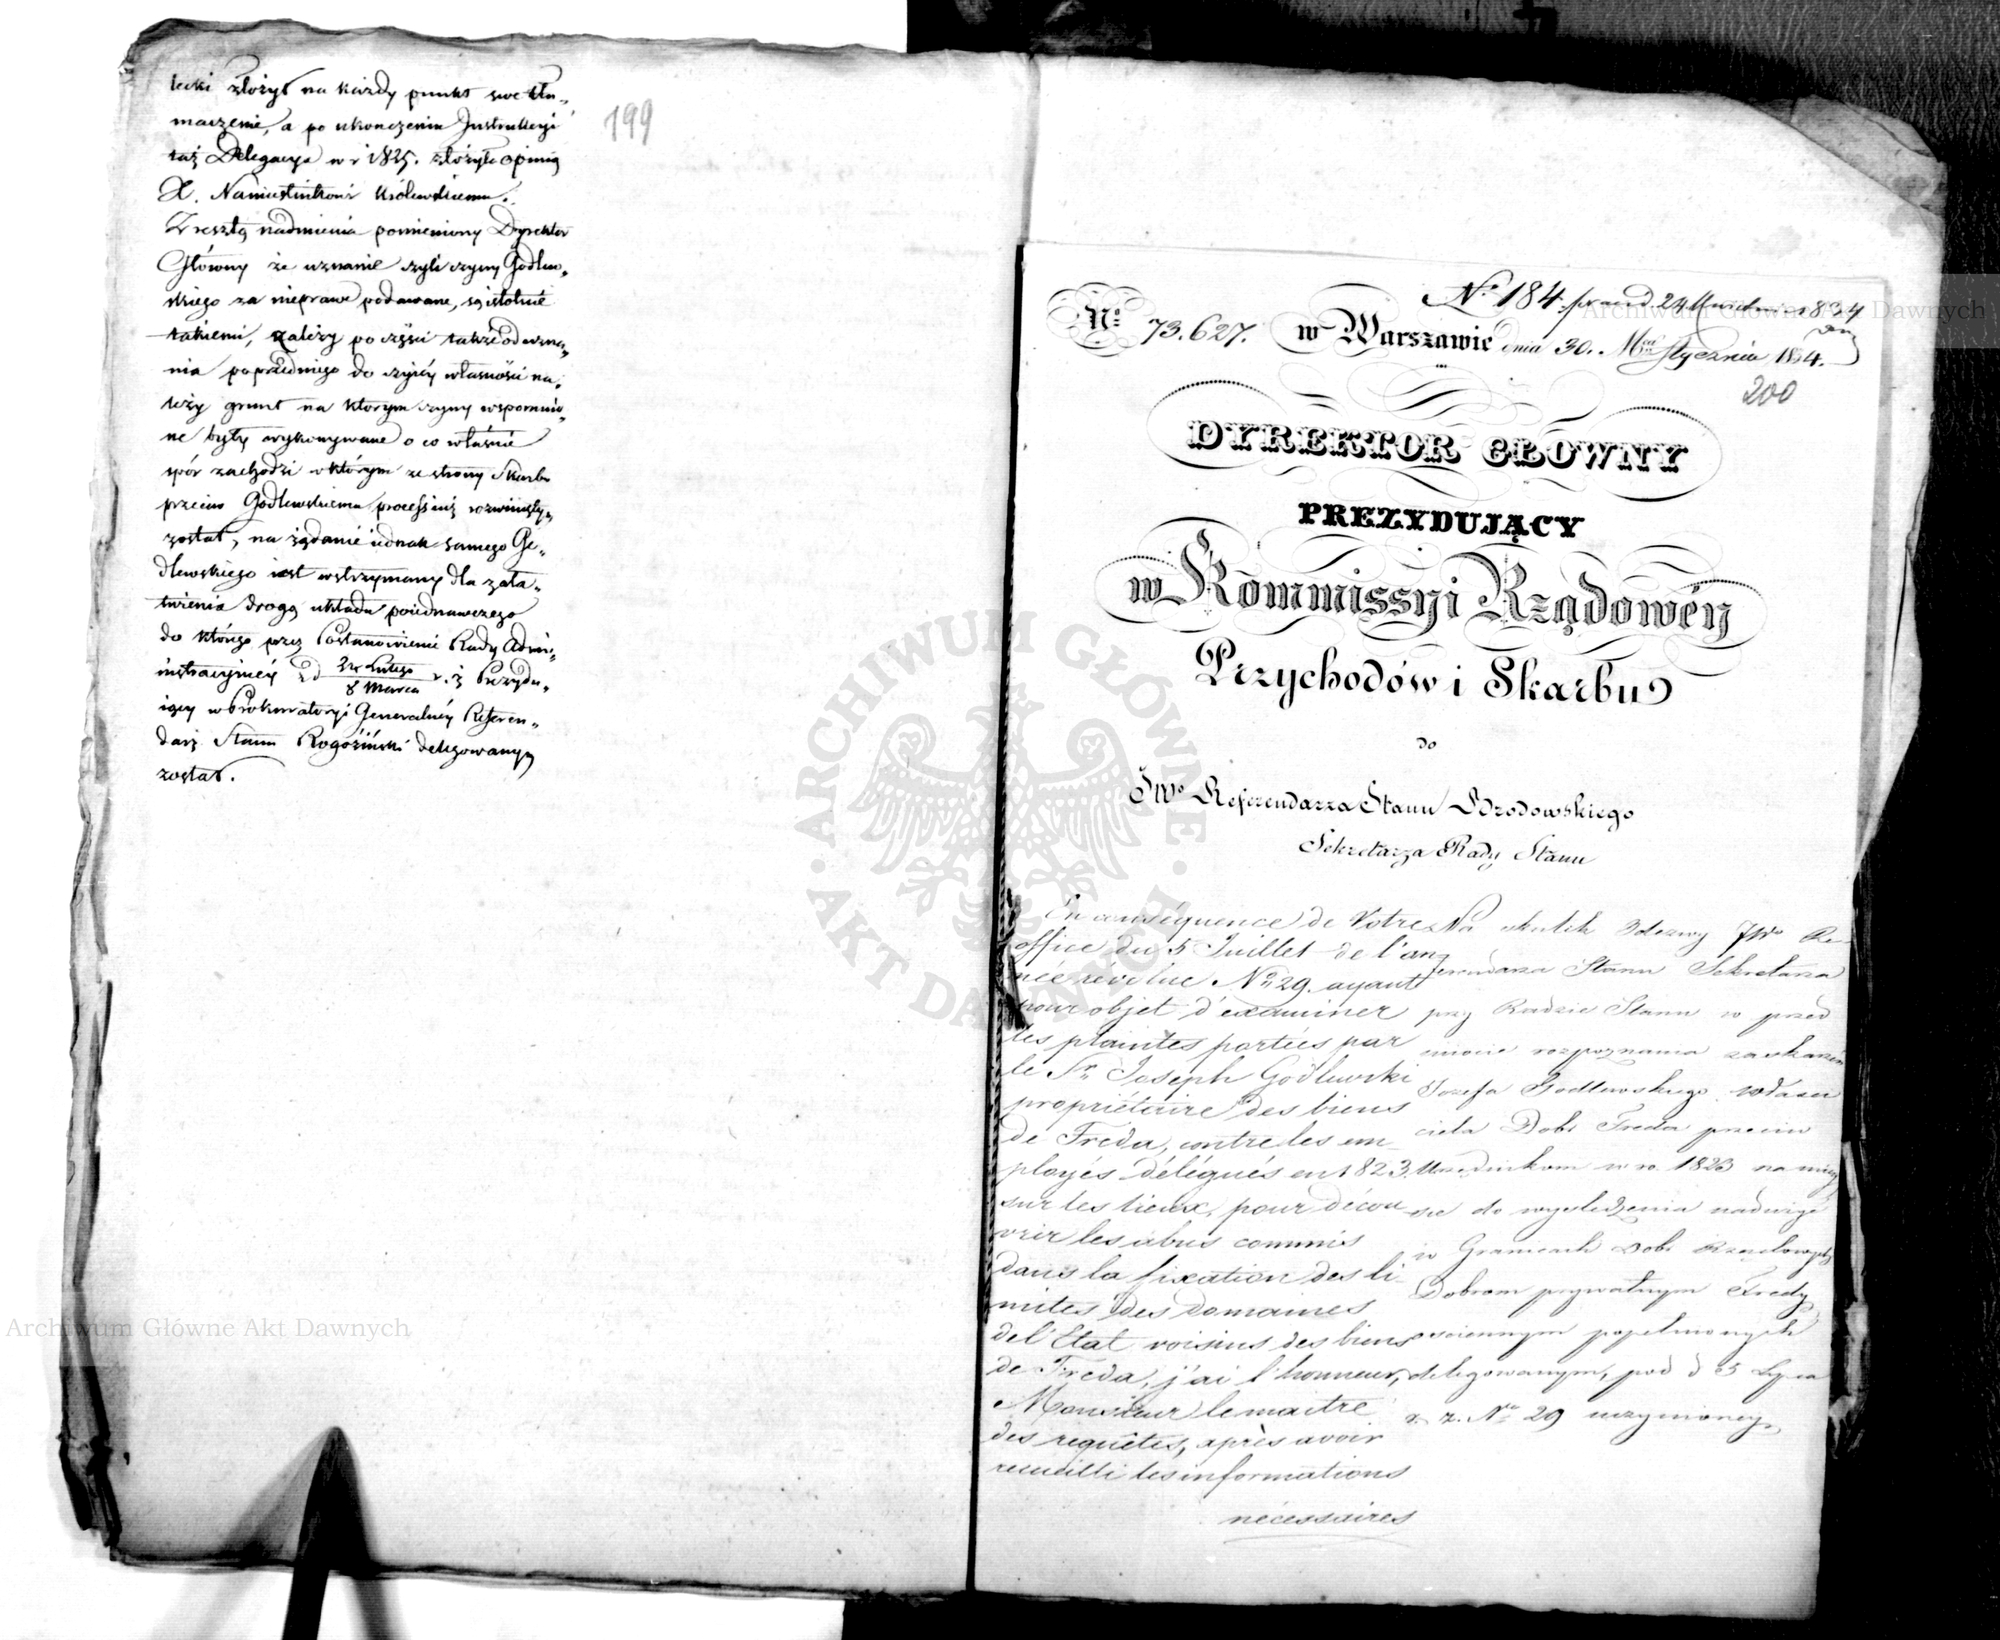 łecki złożył na każdy punkt swe tłu-
maczenie, a po ukończeniu Instrukcyi
taż Delegacya w r 1825. złożyła opinią
X. Namiestnikowi Królewskiemu.
Zresztą nadmienia pomieniony Dyrektor
Główny że uznanie czyli czyny Godlew-
skiego za nieprawe podawane, są istotnie
takiemi, zależy po części także od uzna-
nia poprzedniego do czyiéy własności na-
leży grunt na którym czyny wspomnio-
ne były wykonywane o co właśnie
spór zachodzi w którym ze strony Skarbu
przeciw Godlewskiemu process iuż rozwinięty
został, na żądanie iednak samego Go-
dlewskiego iest wstrzymany dla zała-
twienia drogą układu poiednawczego
do którego przez Postanowienie Rady Admi-
nistracyinéy z d 24 Lutego / 8 Marca r. ż Prezydu-
iący w Prokuratoryi Generalnéy Referen-
darz Stanu Rogoziński delegowanym
został.
199
Nº 184. 1834
Nº 73.627. w Warszawie dnia 30. Mca Stycznia 1834.
200
DYREKTOR GŁÓWNY
PREZYDUJĄCY
w Kommissyi Rządowéy
Przychodów i Skarbu
do
JWo Referendarza Stanu Brodowskiego
Sekretarza Rady Stanu
En conséquence de Votre
office du 5 Juillet de l'an-
née révolue Nº 29. ayant
pour objet d'examiner
les plaintes portées par
le Sr. Joseph Godlewski
propriétaire des biens
de Fréda, contre les em-
ployés délégués en 1823.
sur les lieux, pour décou
vrir les abus commis
dans la fixation des li-
mites des domaines
de l'Etat voisins des biens
de Freda, j'ai l'honneur,
Monsieur le maître
des requêtes, après avoir
recueilli les informations
nécessaires
Na skutek Odezwy JWo Re-
ferendarza Stanu Sekretarza
przy Radzie Stanu w przed
miocie rozpoznania zaskarżeń
Józefa Godlewskiego właści
ciela Dobr Freda przeciw
Urzędnikom w ro. 1823 na miey
sce do wyśledzenia nadużyć
w Granicach Dobr Rządowych
Dobrom prywatnym Fredy
osciennym popełnionych
delegowanym, pod d 5 Lipca
r. z. Nº 29 uczynioney